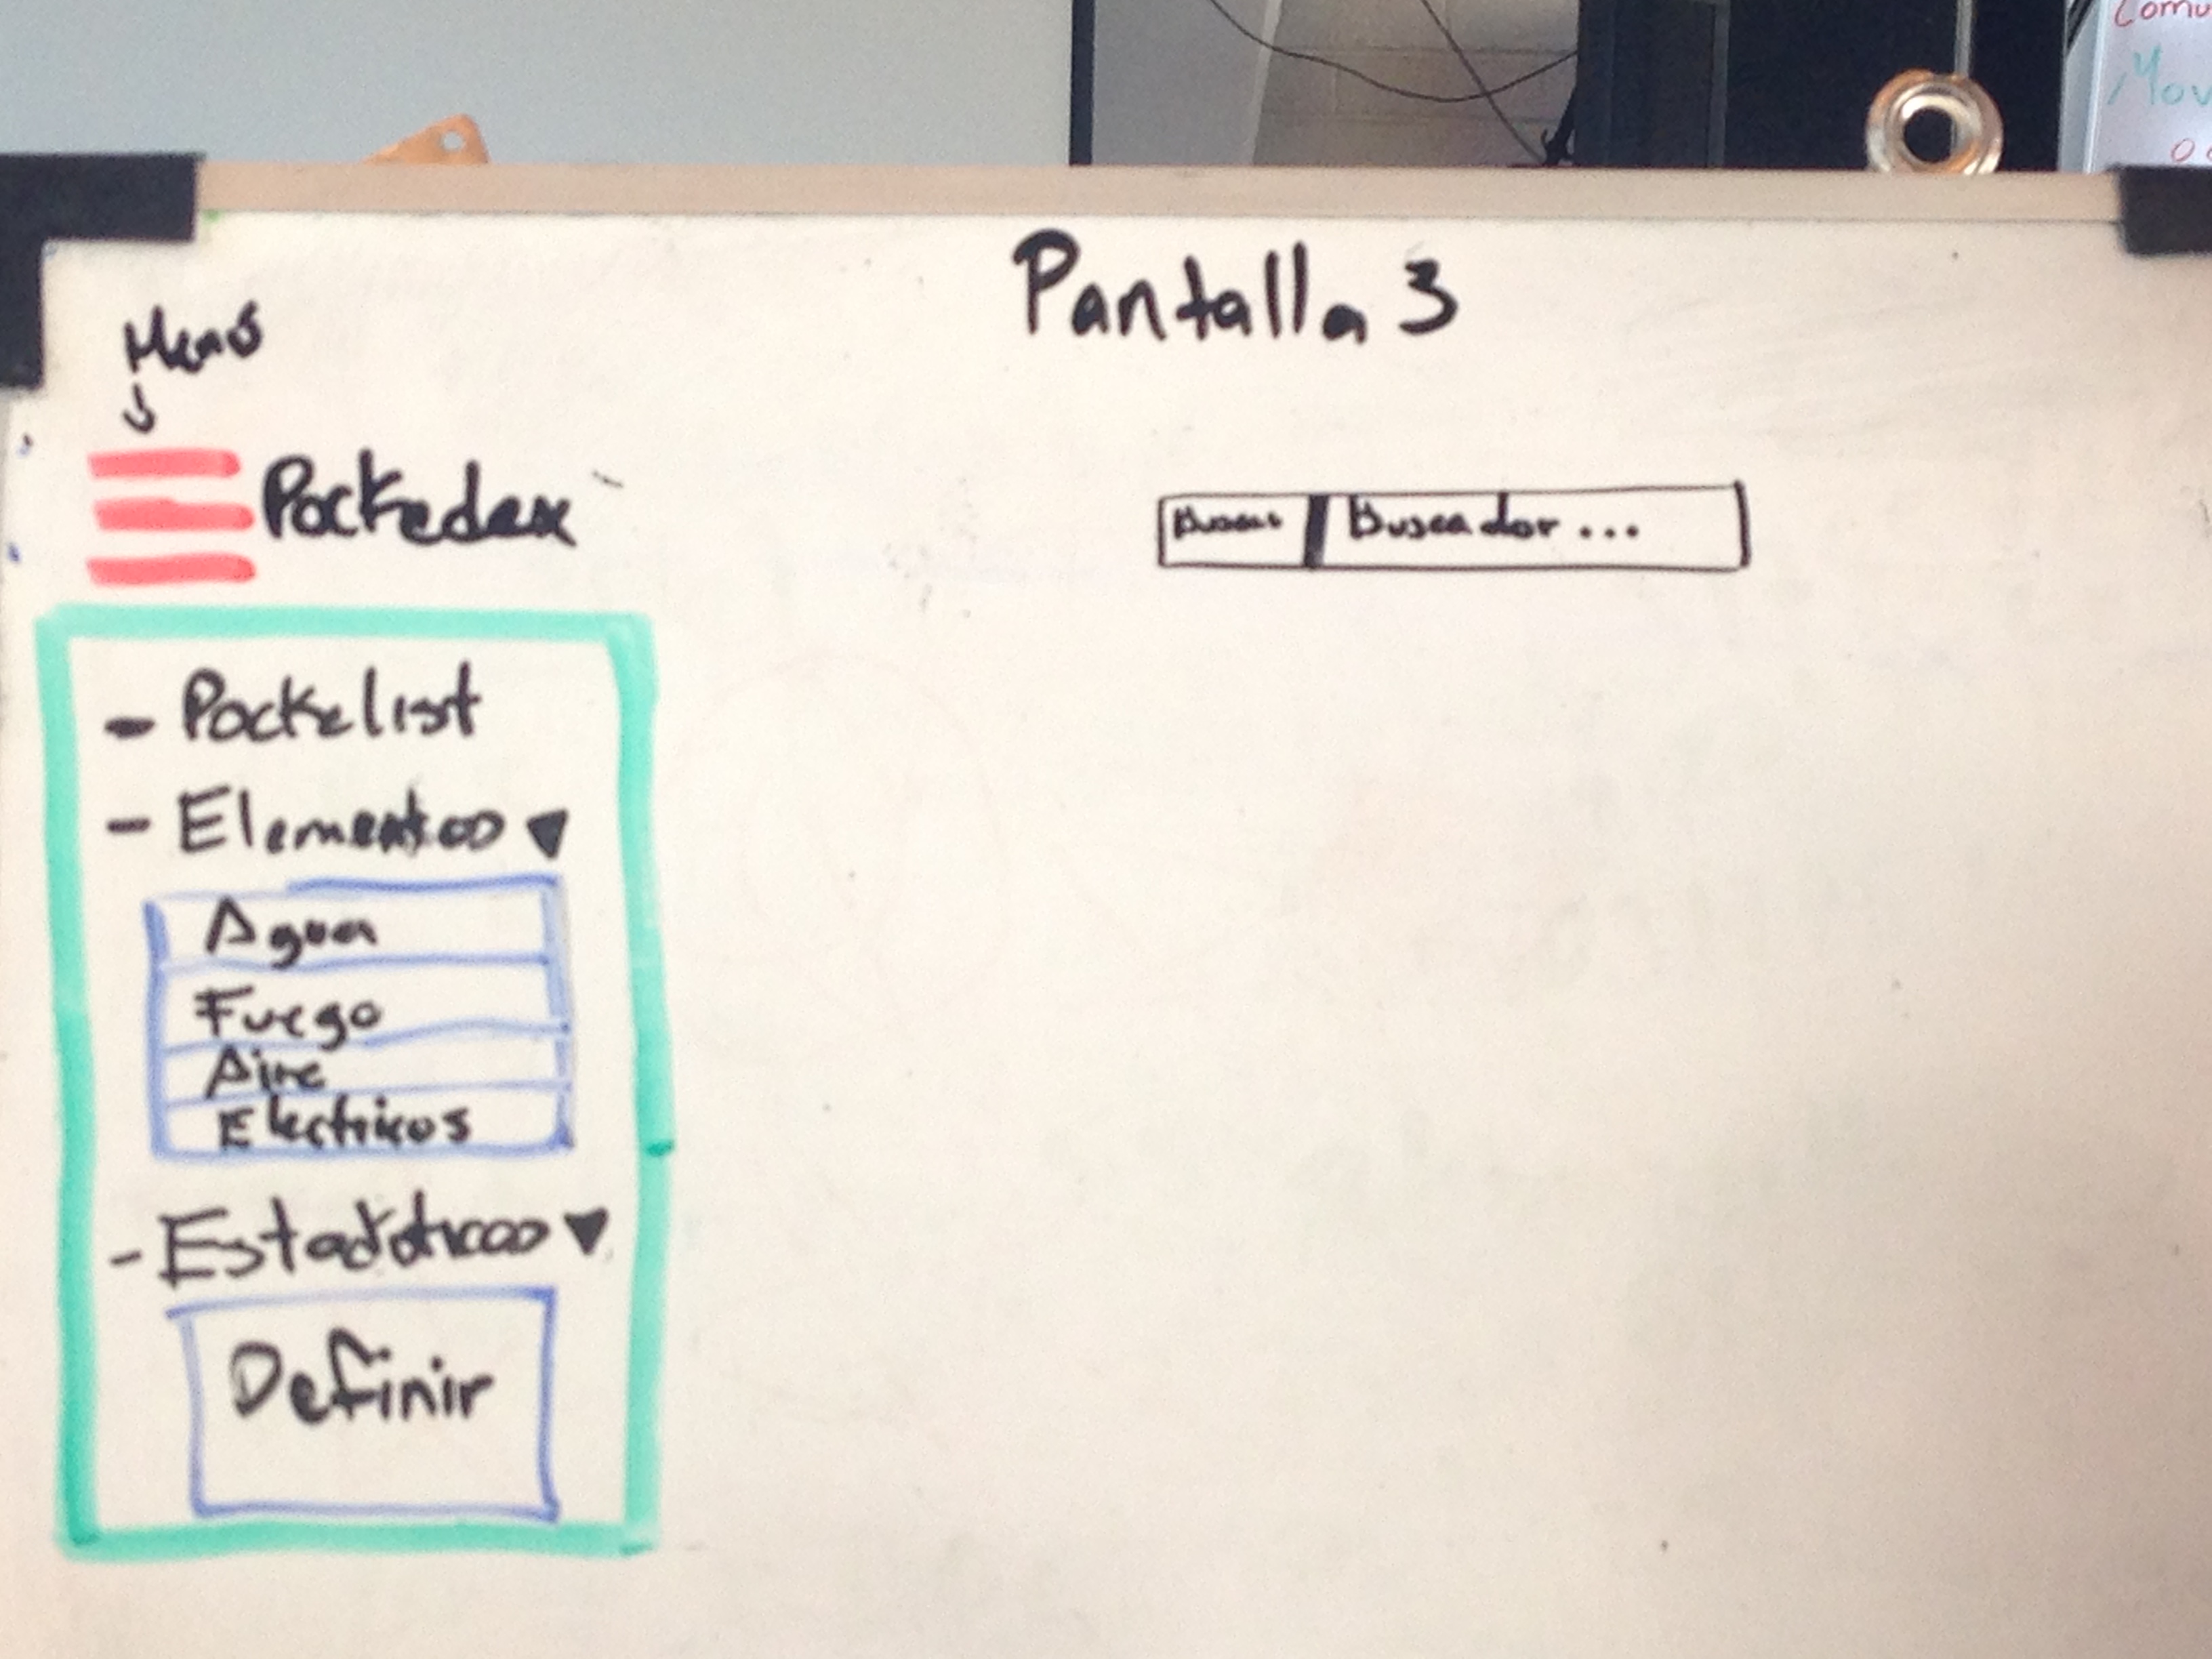 Pantalla 3
Menú
Pockedex
Buscar Buscador ...
- Pockelist
- Elementos ▼
Agua
Fuego
Aire
Electricos
- Estadísticas ▼
Definir